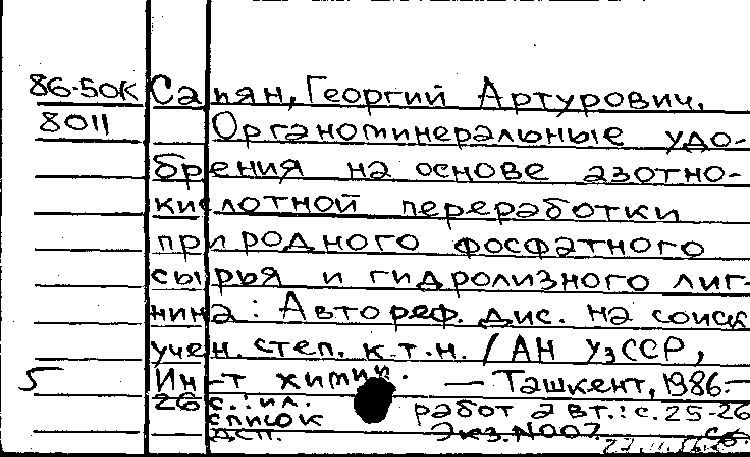 86-50К Сапян, Георгий Артурович.
8011 Органоминеральные удо-
брения на основе азотно-
кислотной переработки
природного фосфатного
сырья и гидролизного лиг-
нина: Автореф. дис. на соиск
учен. степ. к.т.н. / АН УзССР,
5 Ин-т химии. — Ташкент, 1986.—
26 с.: ил.
список работ авт.: с. 25-26
ДСП. Экз. N007.